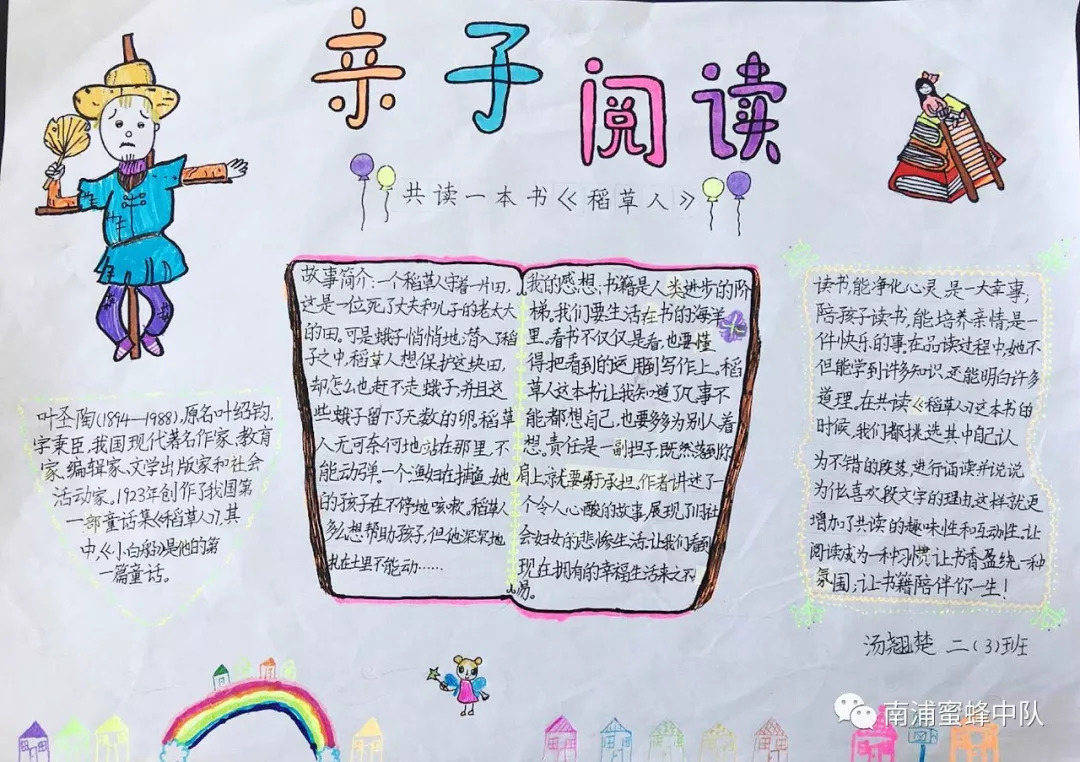 亲子阅读
共读一本书《稻草人》
叶圣陶(1894—1988),原名叶绍钧,
字秉臣,我国现代著名作家、教育
家、编辑家、文学出版家和社会
活动家。1923年创作了我国第
一部童话集《稻草人》,其
中《小白船》是他的第
一篇童话。
故事简介:一个稻草人守着一片田,
这是一位死了丈夫和儿子的老太太
的田。可是蛾子悄悄地潜入了稻
子之中,稻草人想保护这块田,
却怎么也赶不走蛾子,并且这
些蛾子留下了无数的卵。稻草
人无可奈何地站在那里,不
能动弹。一个渔妇在捕鱼,她
的孩子在不停地咳嗽。稻草人
多么想帮助孩子,但他深深地
扎在土里不能动……
我的感想:书籍是人类进步的阶
梯,我们要生活在书的海洋
里,看书不仅仅是看,也要懂
得把看到的运用到写作上。稻
草人这本书让我知道了凡事不
能都想自己,也要多多为别人着
想。责任是一副担子,既然落到你
肩上,就要勇于承担。作者讲述了一
个令人心酸的故事,展现了旧社
会妇女的悲惨生活,让我们看到
现在拥有的幸福生活来之不
易。
读书,能净化心灵,是一大幸事,
陪孩子读书,能培养亲情,是一
件快乐的事。在品读过程中,她不
但能学到许多知识,还能明白许多
道理,在共读《稻草人》这本书的
时候,我们都挑选其中自己认
为不错的段落进行诵读并说说
为什么喜欢段文字的理由,这样就更
增加了共读的趣味性和互动性。让
阅读成为一种习惯,让书香盈绕一种
氛围;让书籍陪伴你一生!
汤翘楚 二(3)班
南浦蜜蜂中队